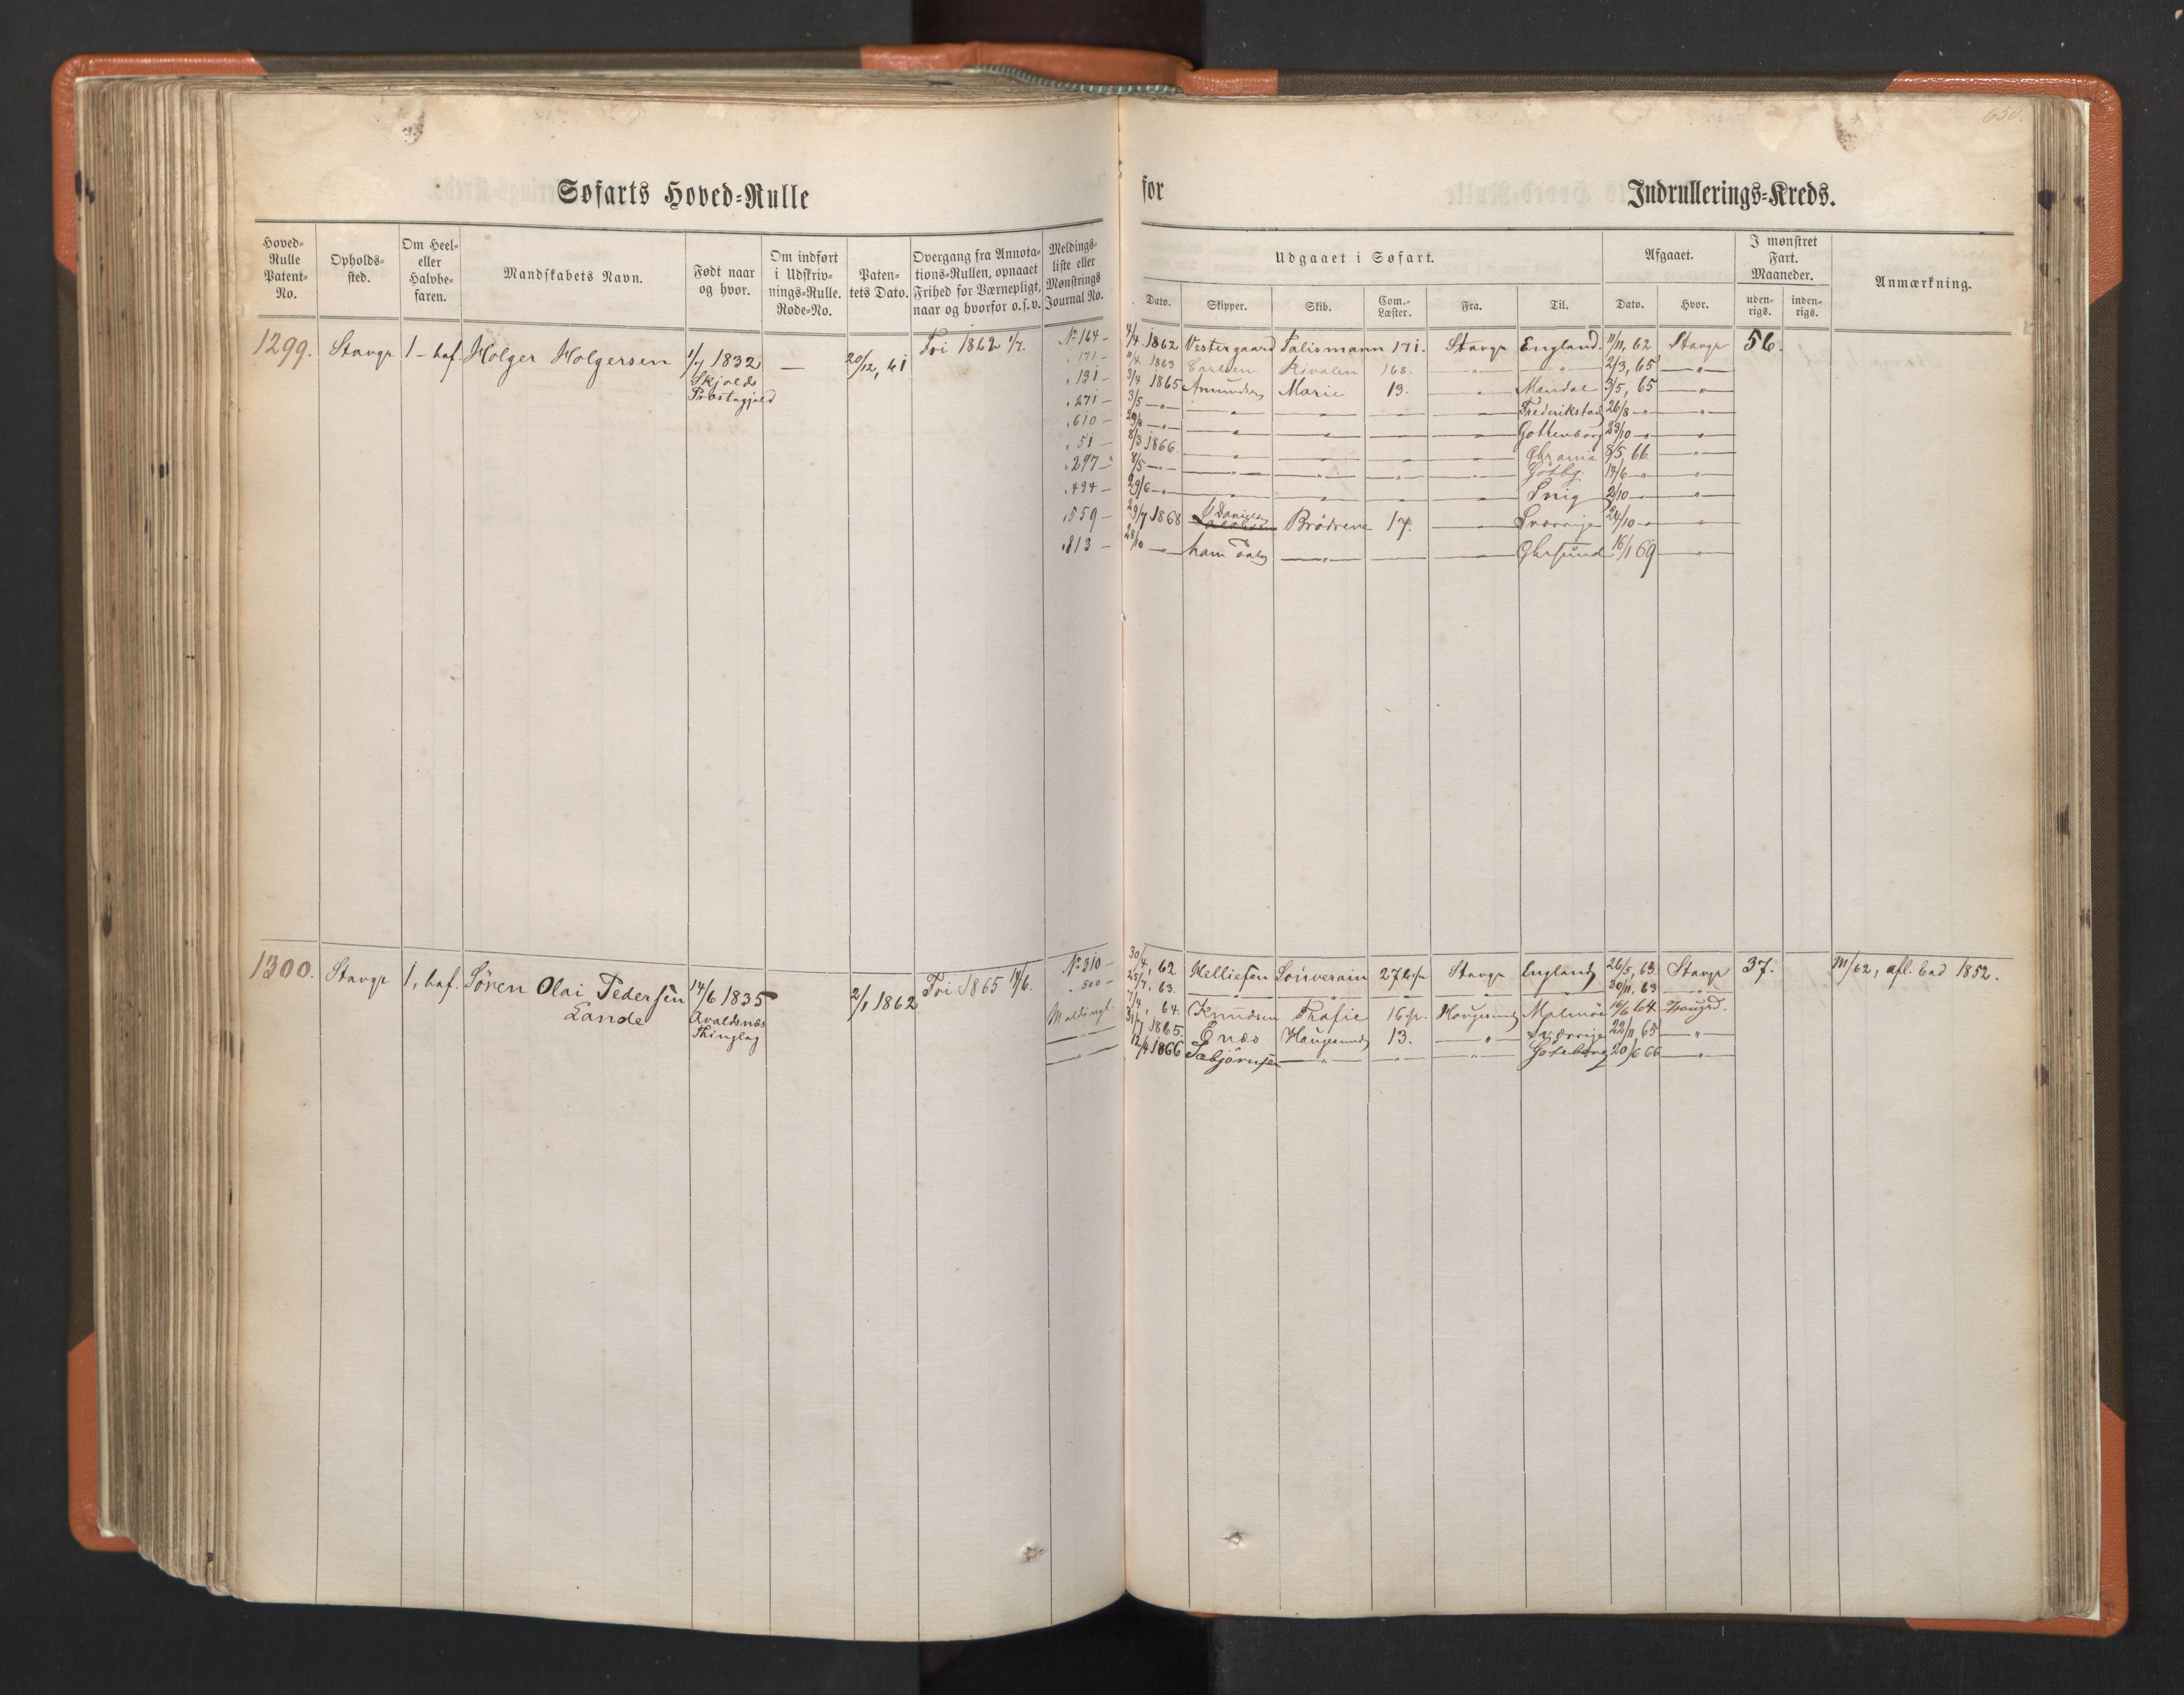 650.
Søfarts Hoved-Rulle
for
Indrullerings-Kreds.
Hoved-Rulle Patent-No.
Opholds-sted.
Om Heel- eller Halvbe-faren.
Mandskabets Navn.
Født naar og hvor.
Om indført i Udskriv-nings-Rulle. Rode-No.
Paten-tets Dato.
Overgang fra Annota-tions-Rullen, opnaaet Frihed for Værnepligt, naar og hvorfor o.s.v.
Meldings-liste eller Mønstrings Journal No.
Udgaaet i Søfart.
Dato.
Skipper.
Skib.
Com.-Læster.
Fra.
Til.
Afgaaet.
Dato.
Hvor.
I mønstret Fart. Maaneder.
uden-rigs.
inden-rigs.
Anmærkning.
1299. Stavgr 1 - haf. Holger Holgersen 1/7 1832 — 20/12, 61 Fri 1862 1/7. № 164 - 4/4 1862 Vestergaard Talismann 171. Stavgr England. 11/11, 62 Stavgr 56.
Skjolds
Præstegjeld
„ 171 - 11/4 1863 Carlsen Rivalen 168. — „ — — „ — 2/3, 65 — „ —
„ 131 - 3/4 1865 Amundsen Marie 13. — „ — Mandal 3/5, 65 — „ —
„ 271 - 3/5 — „ — — „ — — „ — — — Frederikstad 26/8 — „ — — „ —
„ 610 - 29/8 — „ — — „ — — „ — — — Gottenborg 23/10 — „ — — „ —
„ 51 - 8/3 1866. — „ — — „ — — — Chrania 8/5, 66. — „ —
„ 297 - 8/5 — „ — — „ — — „ — — „ — — „ — Götbg. 14/6 — „ — — „ —
„ 434 - 29/6 — „ — — „ — — „ — — „ — — „ — 2/10 — „ — — „ —
„ 559 - 29/7 1868 Danielsen Brödrene 17. — Sverrige 24/10 — „ — — „ —
„ 813 - 28/10 — „ — ham selv — „ — — — Chrsund 16/1 69 — „ —
1300. Stavgr 1, haf. Sören Olai Pedersen 14/6 1835 2/1 1862 Fri 1865 14/6. № 310 - 30/4, 62 Helliesen Souverain 272 Stavgr England 26/5, 63 Stavgr 37. M/62, afl. Ead 1852.
Lande
Avaldsnæs
Thinglag
„ 500 - 25/7, 63. — „ — — „ — — „ — — „ — 30/11, 63 — „ —
Meldingsl. 7/4, 64. Knudsen 16 Haugesund Malmöe 16/6 64 Haugsd.
— „ — 31/7 1865. Enæs Haugesund 13. — „ — Sverrige 22/11, 65 — „ —
— „ — 12/4 1866 Sebjörnsen — „ — — „ — — „ — Göteborg 20/6 66 — „ —